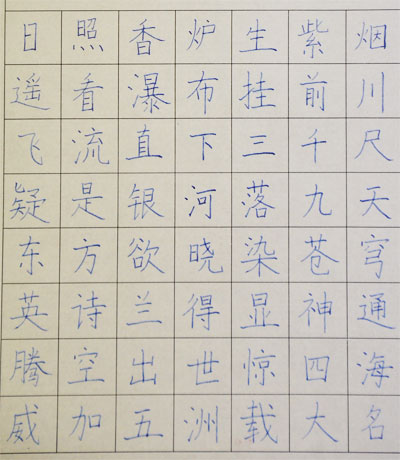 日照香炉生紫烟
遥看瀑布挂前川
飞流直下三千尺
疑是银河落九天
东方欲晓染苍穹
英诗兰得显神通
腾空出世惊四海
威加五洲载大名